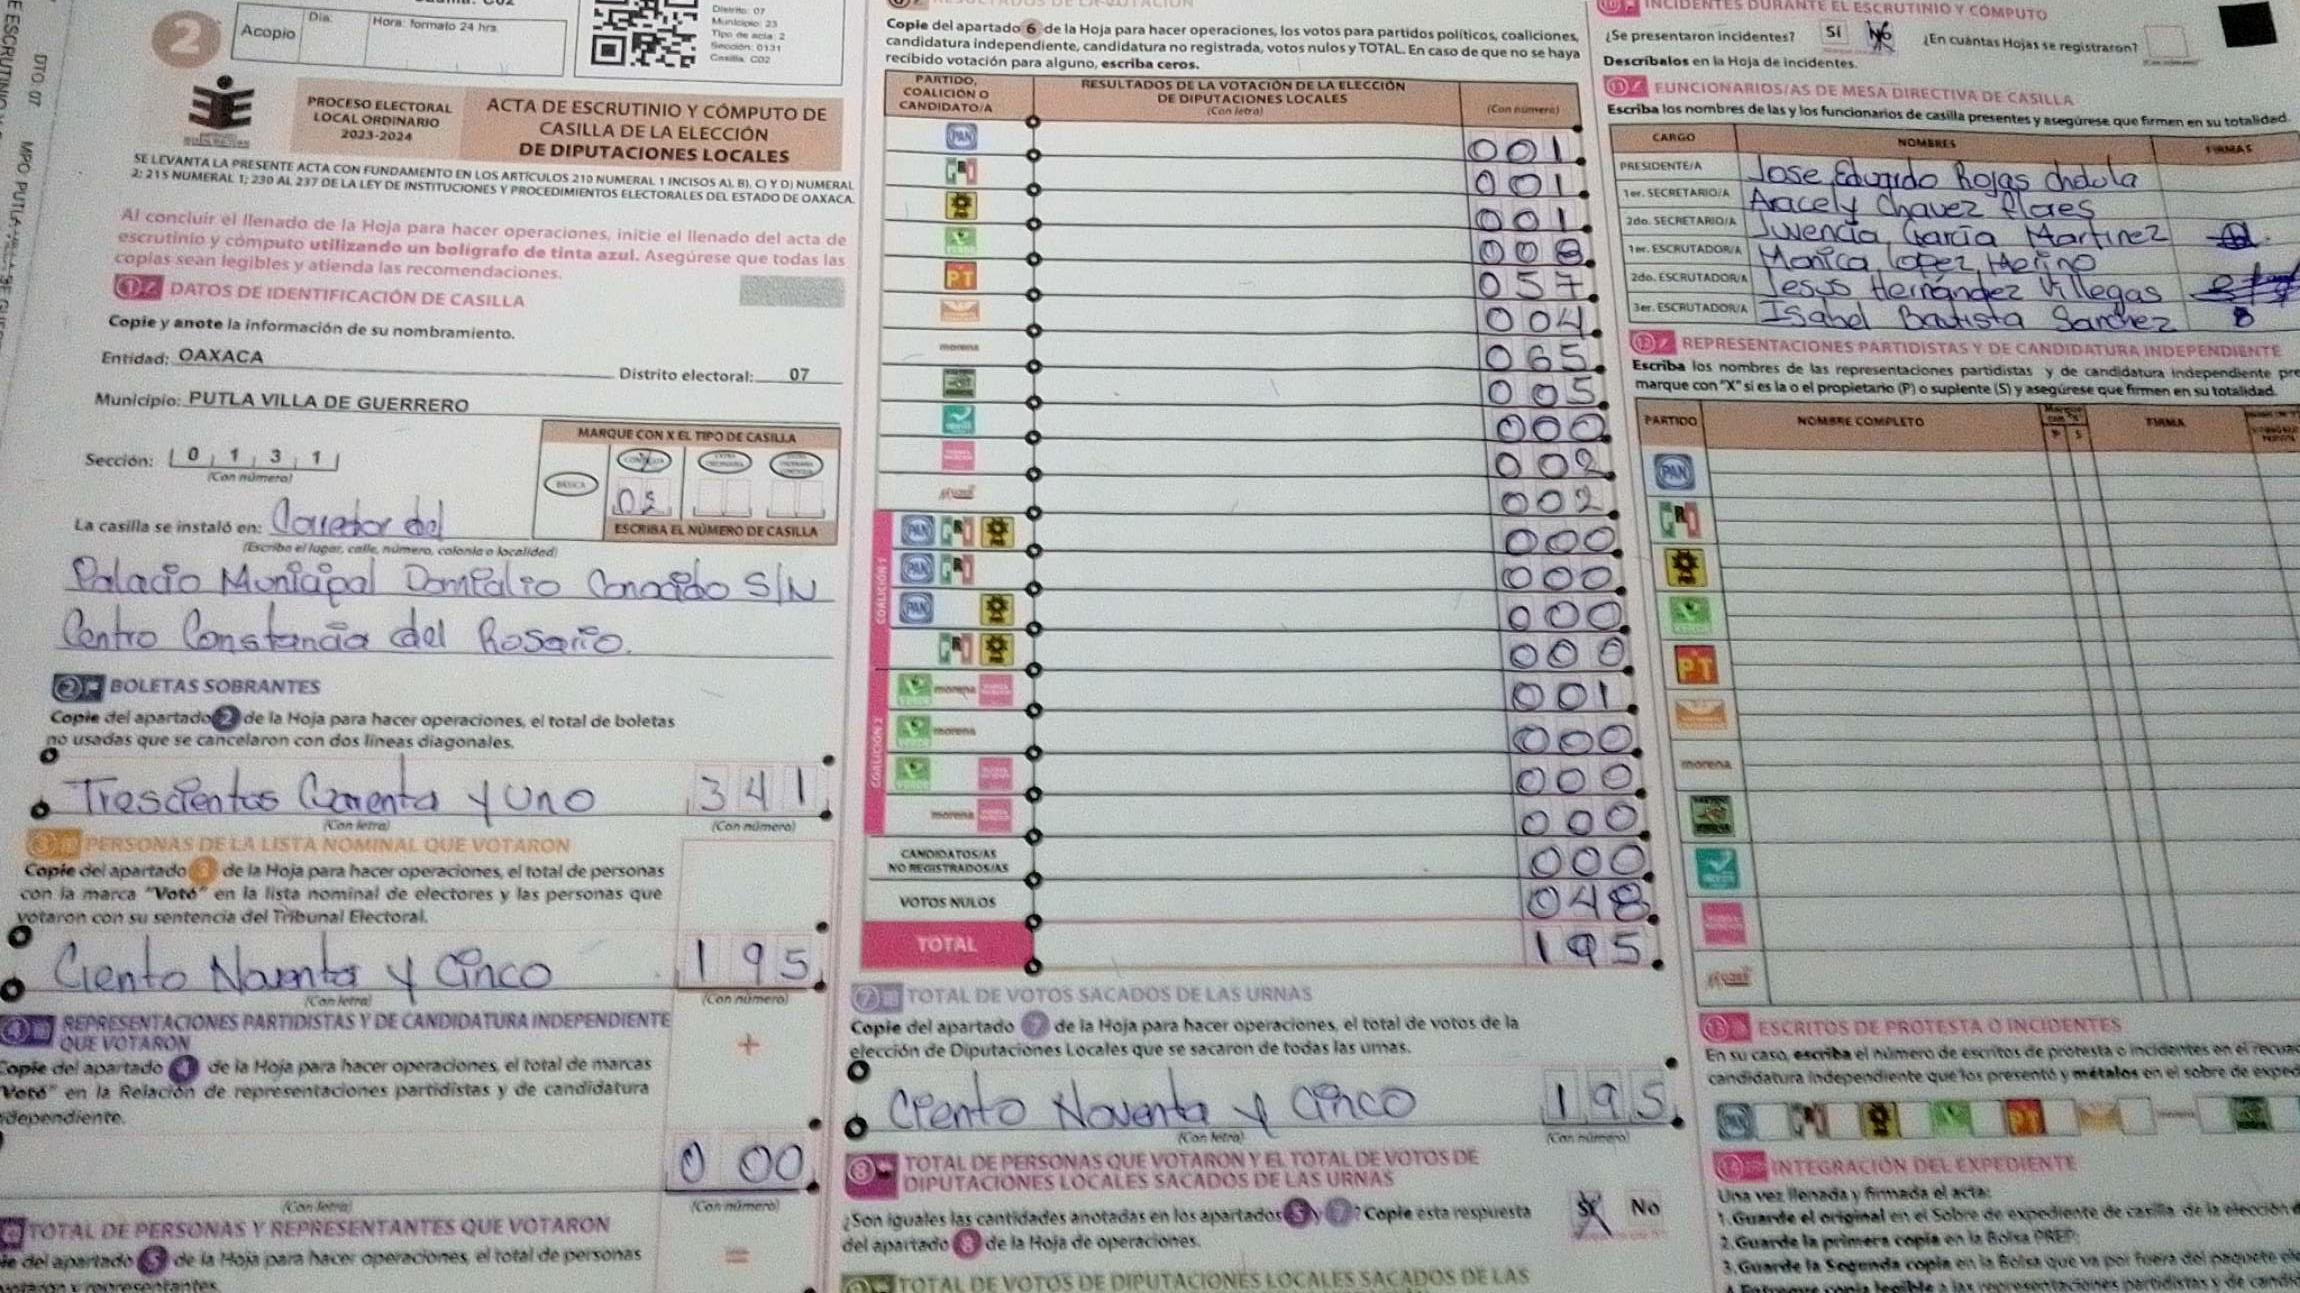 2
Acopio
Día:
Hora: formato 24 hrs.
Distrito: 07
Municipio: 23
Tipo de acta: 2
Sección: 0131
Casilla: C02
DTO. 07
PROCESO ELECTORAL
LOCAL ORDINARIO
2023-2024
ACTA DE ESCRUTINIO Y CÓMPUTO DE
CASILLA DE LA ELECCIÓN
DE DIPUTACIONES LOCALES
SE LEVANTA LA PRESENTE ACTA CON FUNDAMENTO EN LOS ARTÍCULOS 210 NUMERAL 1 INCISOS A), B), C) Y D) NUMERAL
2; 215 NUMERAL 1; 230 AL 237 DE LA LEY DE INSTITUCIONES Y PROCEDIMIENTOS ELECTORALES DEL ESTADO DE OAXACA.
Al concluir el llenado de la Hoja para hacer operaciones, inicie el llenado del acta de
escrutinio y cómputo utilizando un bolígrafo de tinta azul. Asegúrese que todas las
copias sean legibles y atienda las recomendaciones.
1 DATOS DE IDENTIFICACIÓN DE CASILLA
Copie y anote la información de su nombramiento.
Entidad: OAXACA
Distrito electoral: 07
Municipio: PUTLA VILLA DE GUERRERO
Sección: 0 1 3 1
(Con número)
MARQUE CON X EL TIPO DE CASILLA
BÁSICA
02
ESCRIBA EL NÚMERO DE CASILLA
La casilla se instaló en: Corredor del
(Escriba el lugar, calle, número, colonia o localidad)
Palacio Municipal Domicilio Conocido S/N
Centro Constancia del Rosario.
2 BOLETAS SOBRANTES
Copie del apartado 2 de la Hoja para hacer operaciones, el total de boletas
no usadas que se cancelaron con dos líneas diagonales.
Trescientos Cuarenta y Uno 341
(Con letra) (Con número)
3 PERSONAS DE LA LISTA NOMINAL QUE VOTARON
Copie del apartado 3 de la Hoja para hacer operaciones, el total de personas
con la marca "Votó" en la lista nominal de electores y las personas que
votaron con su sentencia del Tribunal Electoral.
Ciento Noventa y Cinco 195
(Con letra) (Con número)
4 REPRESENTACIONES PARTIDISTAS Y DE CANDIDATURA INDEPENDIENTE
QUE VOTARON
Copie del apartado 4 de la Hoja para hacer operaciones, el total de marcas
"Votó" en la Relación de representaciones partidistas y de candidatura
independiente.
+
000
(Con letra) (Con número)
TOTAL DE PERSONAS Y REPRESENTANTES QUE VOTARON
del apartado 5 de la Hoja para hacer operaciones, el total de personas
=
Copie del apartado 6 de la Hoja para hacer operaciones, los votos para partidos políticos, coaliciones,
candidatura independiente, candidatura no registrada, votos nulos y TOTAL. En caso de que no se haya
recibido votación para alguno, escriba ceros.
PARTIDO,
COALICIÓN O
CANDIDATO/A
RESULTADOS DE LA VOTACIÓN DE LA ELECCIÓN
DE DIPUTACIONES LOCALES
(Con letra)
(Con número)
PAN 001
PRI 001
PRD 001
VERDE 008
PT 057
004
morena 065
005
000
002
002
COALICIÓN 1
PAN PRI PRD 000
PAN PRI 000
PAN PRD 000
PRI PRD 000
COALICIÓN 2
VERDE morena 001
VERDE morena 000
VERDE 000
morena 000
CANDIDATOS/AS
NO REGISTRADOS/AS 000
VOTOS NULOS 048
TOTAL 195
7 TOTAL DE VOTOS SACADOS DE LAS URNAS
Copie del apartado 7 de la Hoja para hacer operaciones, el total de votos de la
elección de Diputaciones Locales que se sacaron de todas las urnas.
Ciento Noventa y Cinco 195
(Con letra) (Con número)
8 TOTAL DE PERSONAS QUE VOTARON Y EL TOTAL DE VOTOS DE
DIPUTACIONES LOCALES SACADOS DE LAS URNAS
¿Son iguales las cantidades anotadas en los apartados 5 y 7? Copie esta respuesta
del apartado 8 de la Hoja de operaciones.
Sí No
TOTAL DE VOTOS DE DIPUTACIONES LOCALES SACADOS DE LAS
INCIDENTES DURANTE EL ESCRUTINIO Y CÓMPUTO
¿Se presentaron incidentes? Sí No ¿En cuántas Hojas se registraron?
Descríbalos en la Hoja de incidentes.
11 FUNCIONARIOS/AS DE MESA DIRECTIVA DE CASILLA
Escriba los nombres de las y los funcionarios de casilla presentes y asegúrese que firmen en su totalidad.
CARGO NOMBRES FIRMAS
PRESIDENTE/A Jose Eduardo Rojas Chdola
1er. SECRETARIO/A Aracely Chavez flores
2do. SECRETARIO/A Juvencia Garcia Martinez
1er. ESCRUTADOR/A Monica Lopez Merino
2do. ESCRUTADOR/A Jesus Hernández Villegas
3er. ESCRUTADOR/A Isabel Bautista Sanchez
12 REPRESENTACIONES PARTIDISTAS Y DE CANDIDATURA INDEPENDIENTE
Escriba los nombres de las representaciones partidistas y de candidatura independiente pre
marque con "X" si es la o el propietario (P) o suplente (S) y asegúrese que firmen en su totalidad.
PARTIDO NOMBRE COMPLETO P S FIRMA
PAN
PRI
PRD
PT
morena
13 ESCRITOS DE PROTESTA O INCIDENTES
En su caso, escriba el número de escritos de protesta o incidentes en el recuad
candidatura independiente que los presentó y métalos en el sobre de exped
14 INTEGRACIÓN DEL EXPEDIENTE
Una vez llenada y firmada el acta:
1. Guarde el original en el Sobre de expediente de casilla de la elección d
2. Guarde la primera copia en la Bolsa PREP.
3. Guarde la Segunda copia en la Bolsa que va por fuera del paquete ele